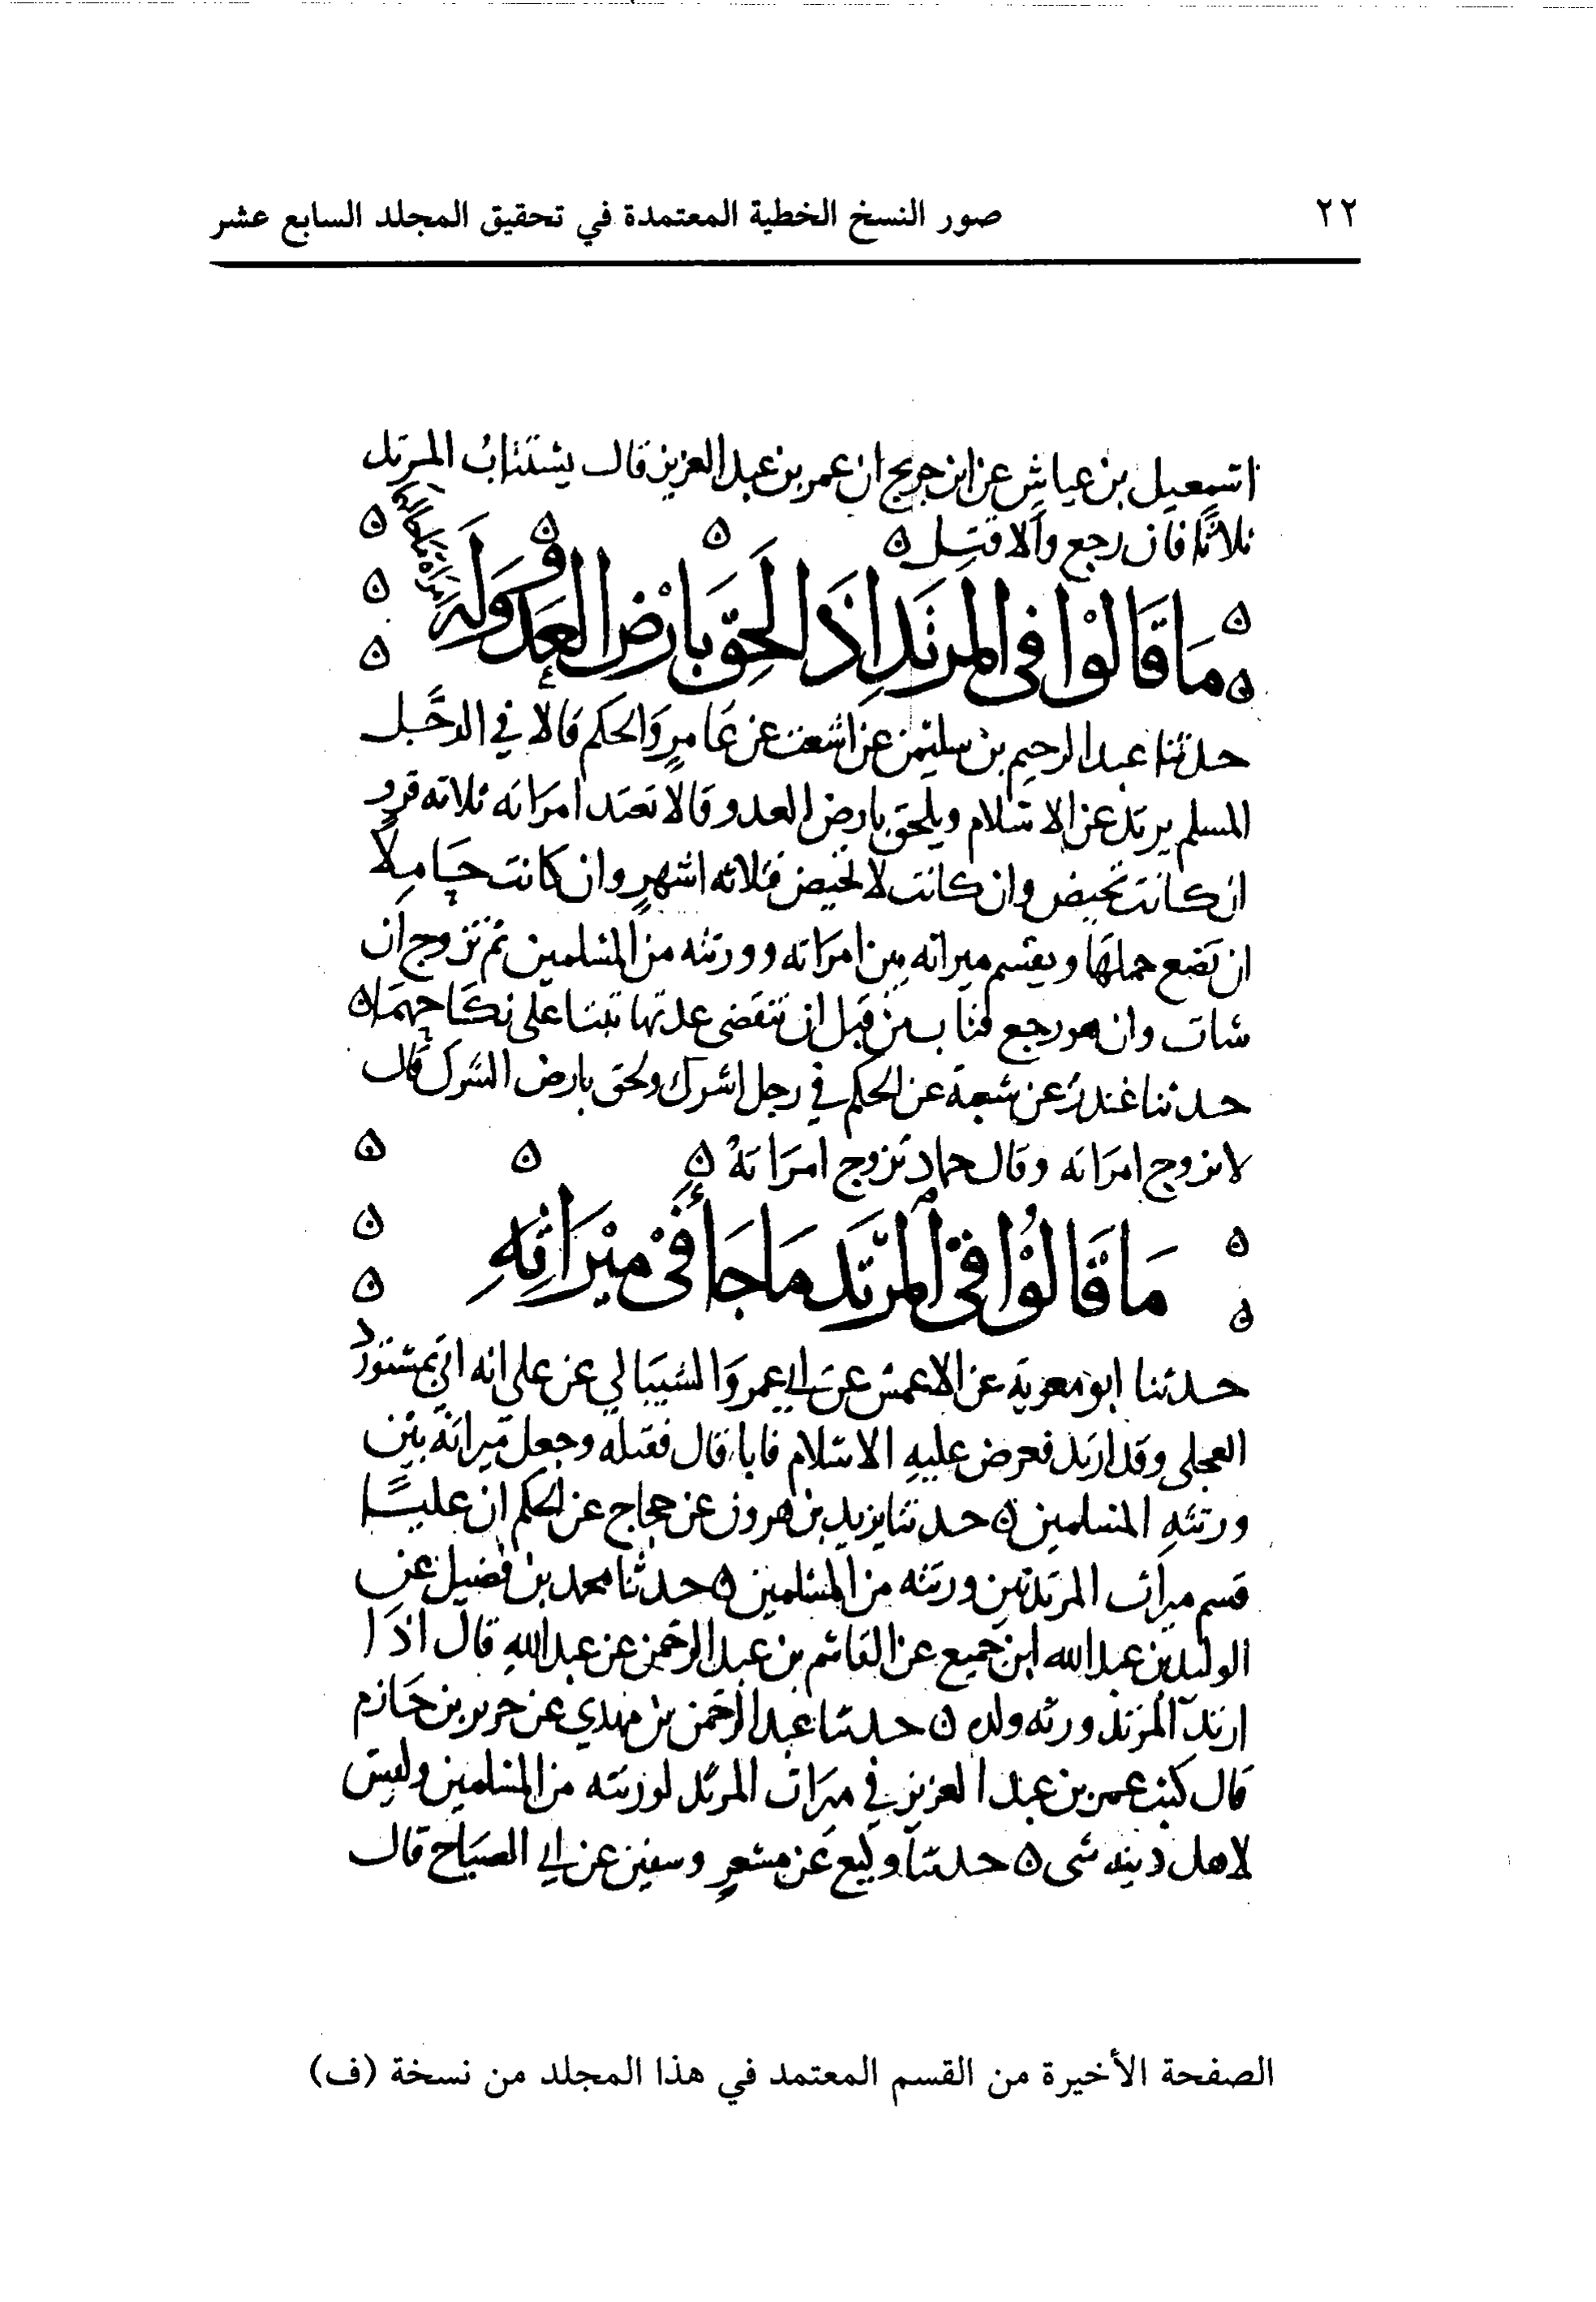 ٢٢
صور النسخ الخطية المعتمدة في تحقيق المجلد السابع عشر
اسمعيل بن عياش عن ابن جريج ان عمر بن عبد العزيز قال يستتاب المرتد
ثلاثا فان رجع والا قتل
ما قالوا في المرتد اذا لحق بارض العدو وله
امراة ما حالهما
حدثنا عبد الرحيم بن سليمن عن اشعث عن عامر والحكم قالا في الرجل
المسلم يرتد عن الاسلام ويلحق بارض العدو قالا تعتد امراته ثلاثه قرو
ان كانت تحيض وان كانت لا تحيض فثلاثه اشهر وان كانت حاملا
ان تضع حملها ويقسم ميراثه بين امراته وورثته من المسلمين ثم تزوج ان
شات وان هو رجع فتاب من قبل ان تنقضي عدتها ثبتا على نكاحهما
حدثنا غندر عن شعبة عن الحكم في رجل اشرك ولحق بارض الشرك قال
لا تزوج امراته وقال حماد تزوج امراته
ما قالوا في المرتد ما جا في ميراثه
حدثنا ابو معوية عن الاعمش عن ابي عمرو الشيباني عن علي انه اتي بمستورد
العجلي وقد ارتد فعرض عليه الاسلام فابا قال فقتله وجعل ميراثه بين
ورثته المسلمين حدثنا يزيد بن هرون عن حجاج عن الحكم ان عليا
قسم ميراث المرتد بين ورثته من المسلمين حدثنا محمد بن فضيل عن
الوليد بن عبد الله ابن جميع عن القاسم بن عبد الرحمن عن عبد الله قال اذا
ارتد المرتد ورثه ولده حدثنا عبد الرحمن بن مهدي عن جرير بن حازم
قال كتب عمر بن عبد العزيز في ميراث المرتد لورثته من المسلمين وليس
لاهل دينه شى حدثنا وكيع عن مسعر وسفين عن ابي الصباح قال
الصفحة الأخيرة من القسم المعتمد في هذا المجلد من نسخة (ف)